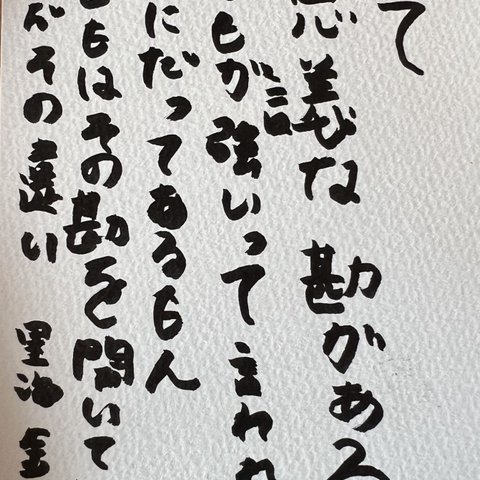 て
思議な 勘がある
もが強いって言われ
にだってあるもん
もはその勘を聞いて
がその違い 里海 金